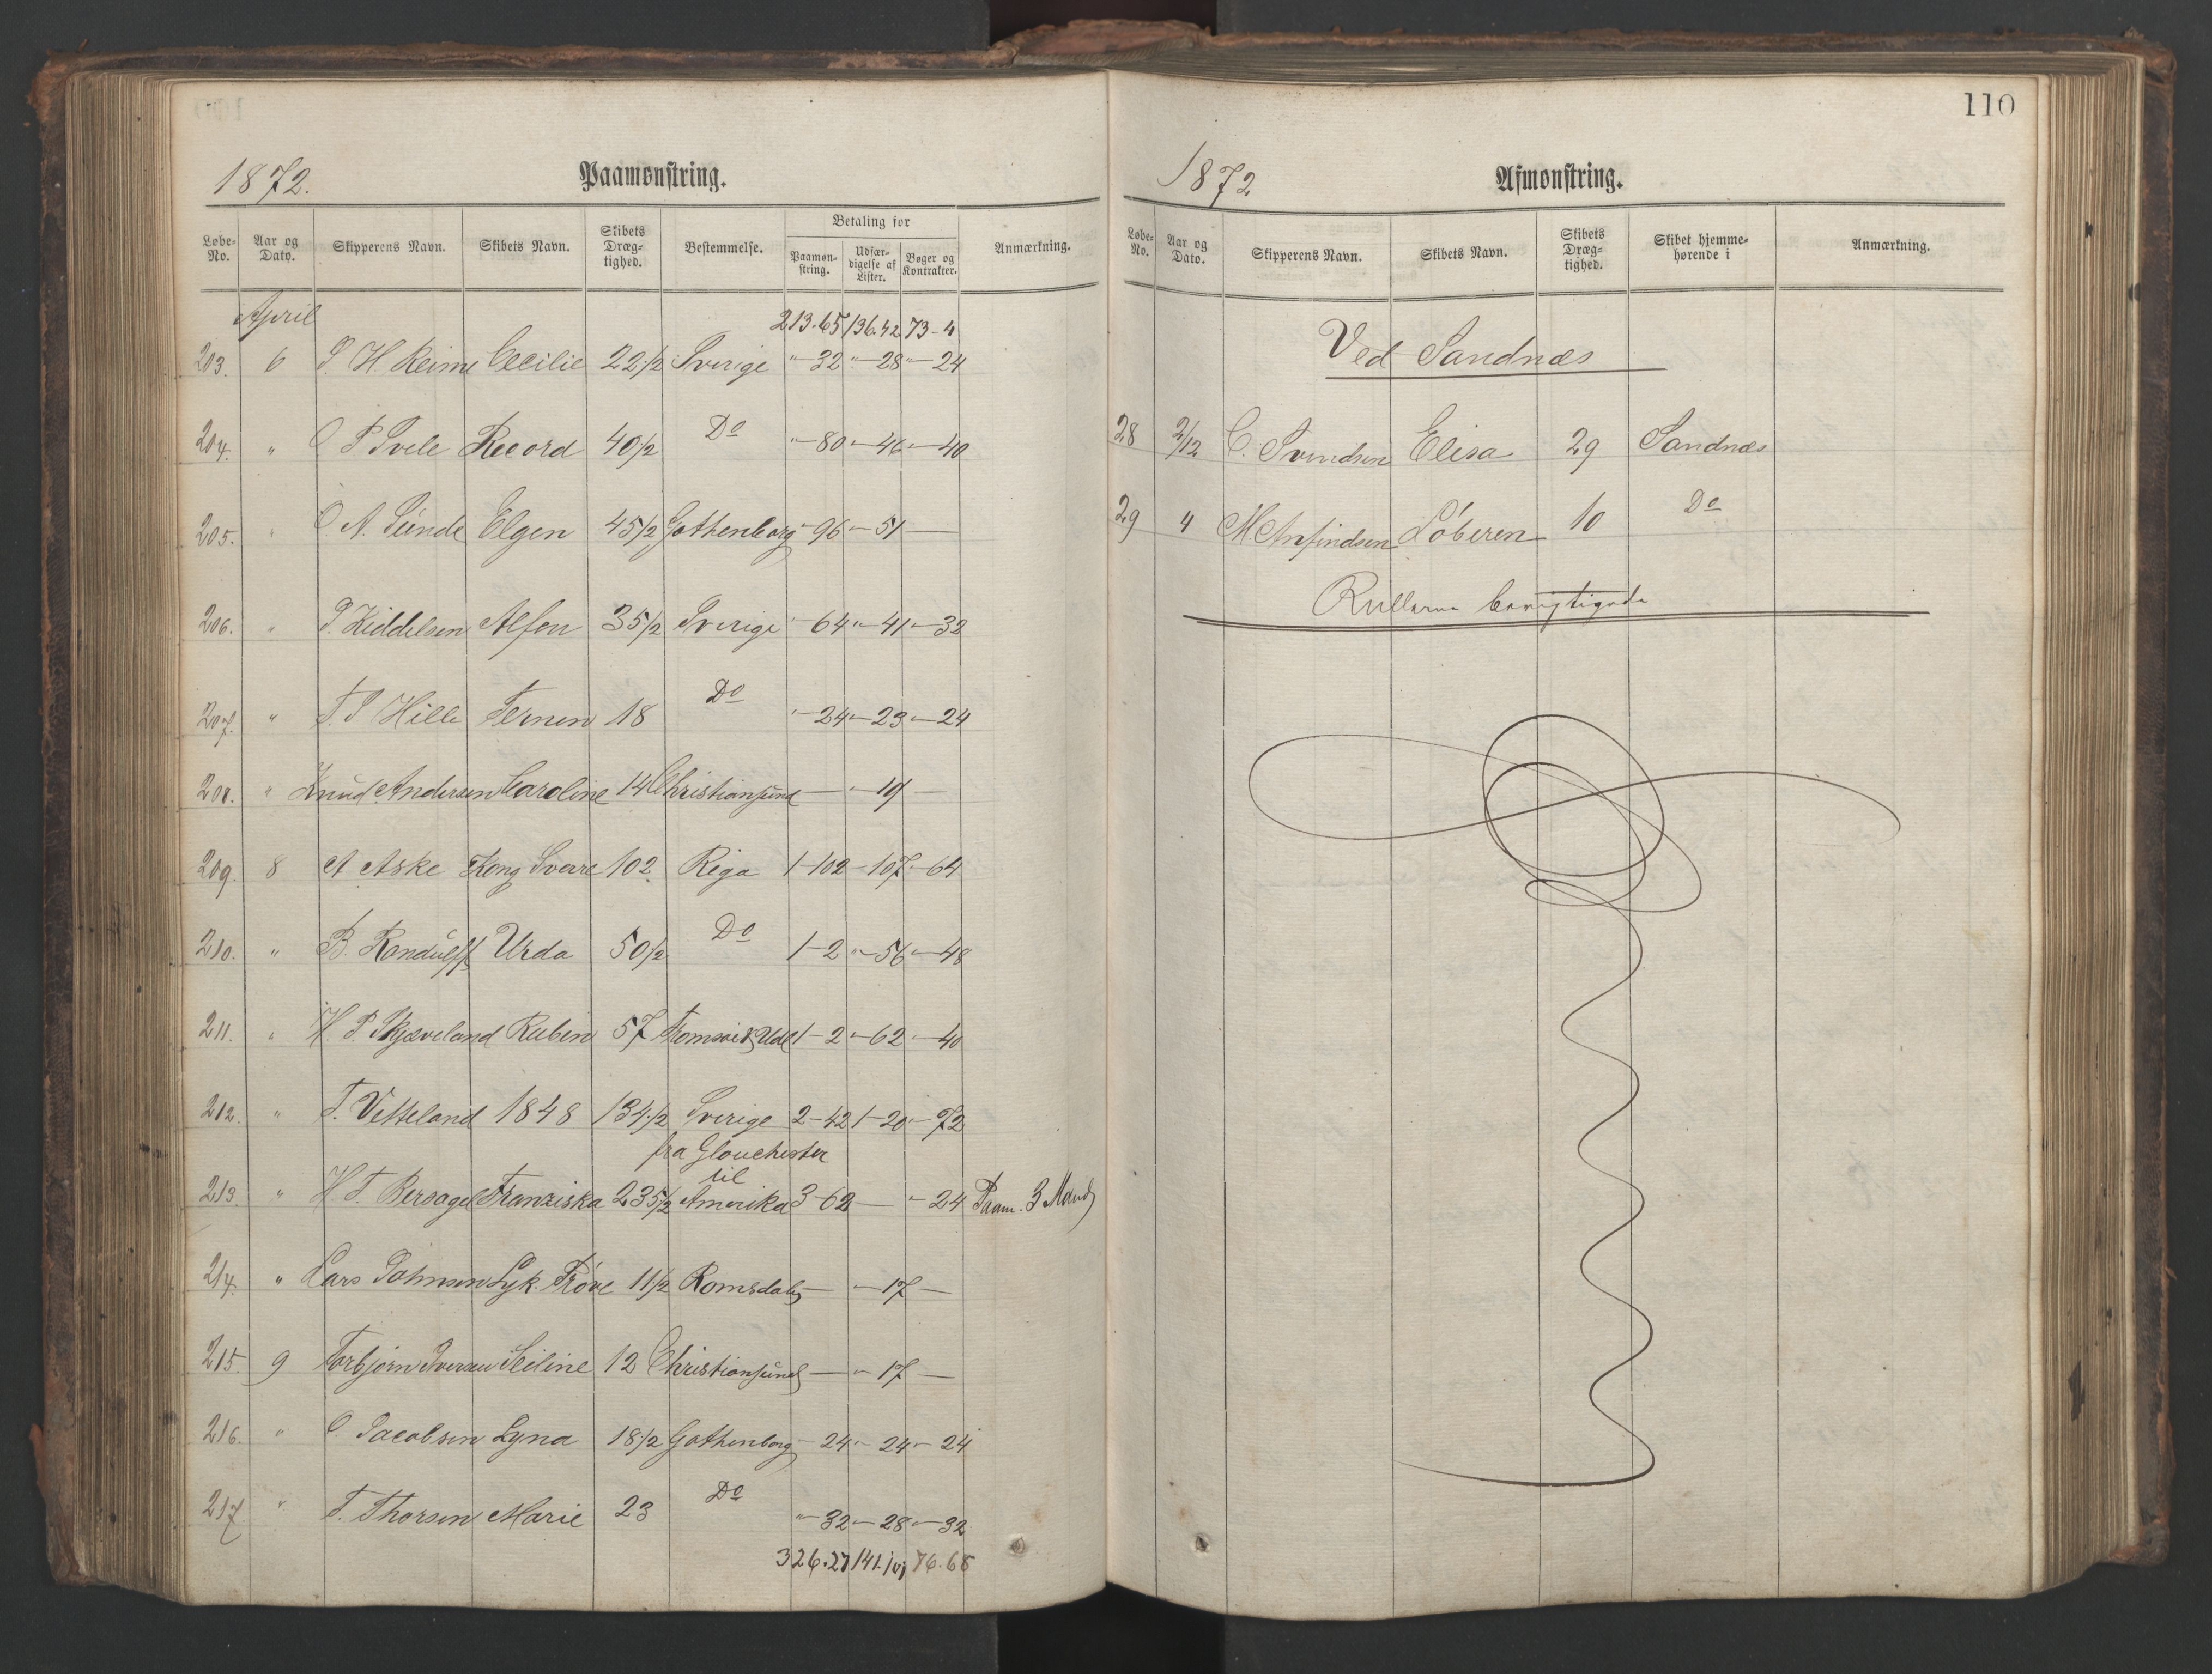 1872.
Paamønstring.
Løbe-No. Aar og Dato. Skipperens Navn. Skibets Navn. Skibets Dræg-tighed. Bestemmelse. Betaling for Paamøn-string. Udfær-digelse af Lister. Bøger og Kontrakter. Anmærkning.
April 213.65 136.42 73-4
203. 6 P. H. Reime Cecilie 22 1/2 Sverige "-32 "-28 "-24
204. " O P Svele Record 40 1/2 Do "-80 "-46 "-40
205. " O A. Sunde Elgen 45 1/2 Gothenborg "-96 "-51 —
206. " P. Kiddelsen Alfen 35 1/2 Sverige "-64 "-41 "-32
207. " T. P Hille Ternen 18 Do "-24 "-23 "-24
208. " Knud Andersen Caroline 14 Christiansund — "-19 —
209. 8 A Aske Kong Sverre 102 Riga 1-102 -107 "-64
210. " B. Randulff Urda 50 1/2 Do 1-2 "-56 "-48
211. " H. P. Skjæveland Rubin 57 Tromsøe & Udl 1-2 "-62 "-40
212. " T. Vetteland 1848 134 1/2 Sverige 2-42 1-20 "-72
fra Glouchester
til
213. " H. T. Bersagel Franziska 235 1/2 Amerika 3-62 — "-24 Paam. 3 Mand
214. " Lars Johnsen Lyk. Prøve 11 1/2 Romsdalen — "-17 —
215. 9 Torbjørn Iversen Seiline 12 Christiansund — "-17 —
216. " O. Jacobsen Lyna 18 1/2 Gothenborg "-24 "-24 "-24
217. " T. Thorsen Marie 23 Do "-32 "-28 "-32
326.27 141. 76.68
110
1872
Afmønstring.
Løbe-No. Aar og Dato. Skipperens Navn. Skibets Navn. Skibets Dræg-tighed. Skibet hjemme-hørende i Anmærkning.
Ved Sandnæs
28 2/12 C. Svendsen Elisa 29 Sandnæs
29 4 M. Anfindsen Løberen 10 Do
Rullerne berigtigede